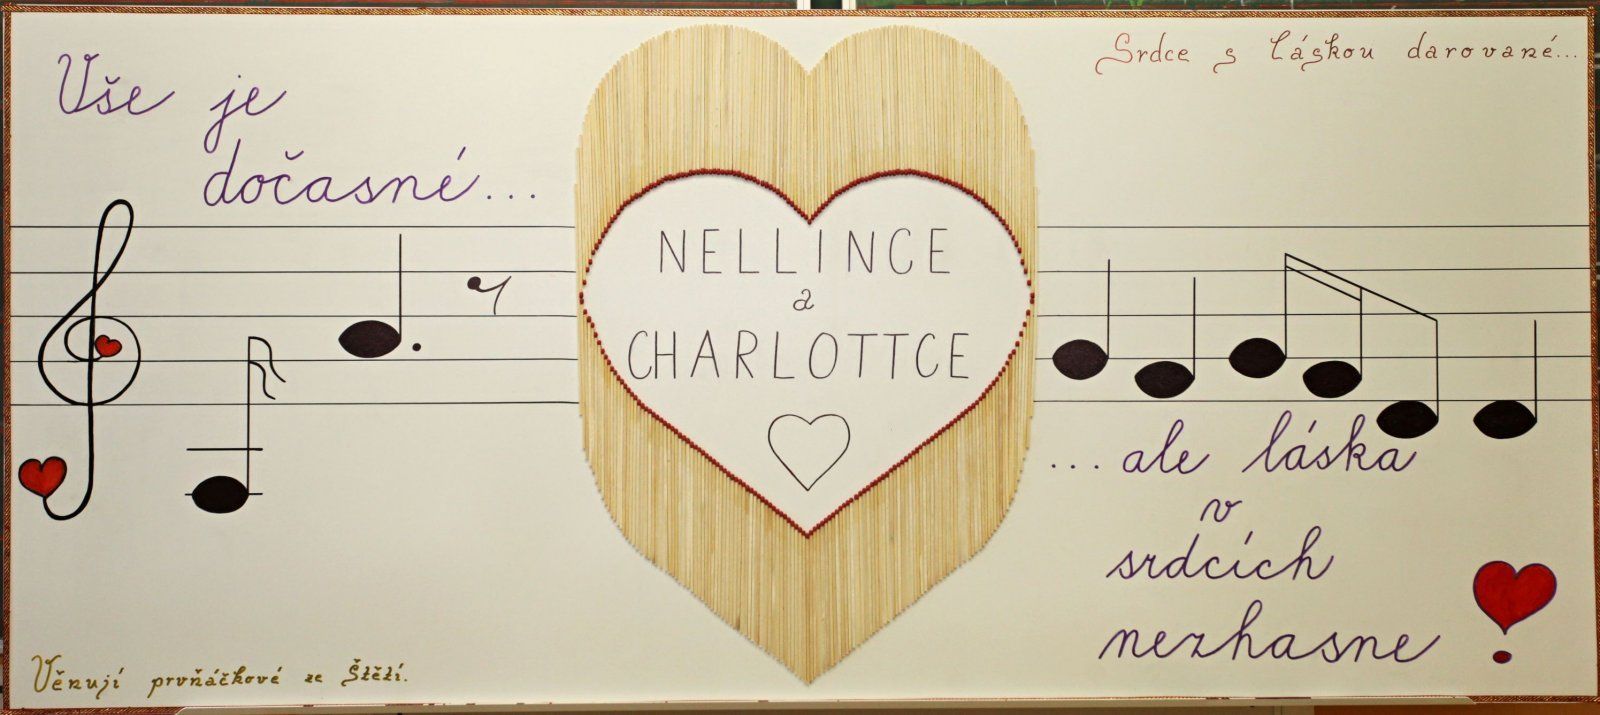 Vše je
dočasné...
Srdce s láskou darované...
NELLINCE
a
CHARLOTTCE
...ale láska
v
srdcích
nezhasne
Věnují prvňáčkové ze Štětí.